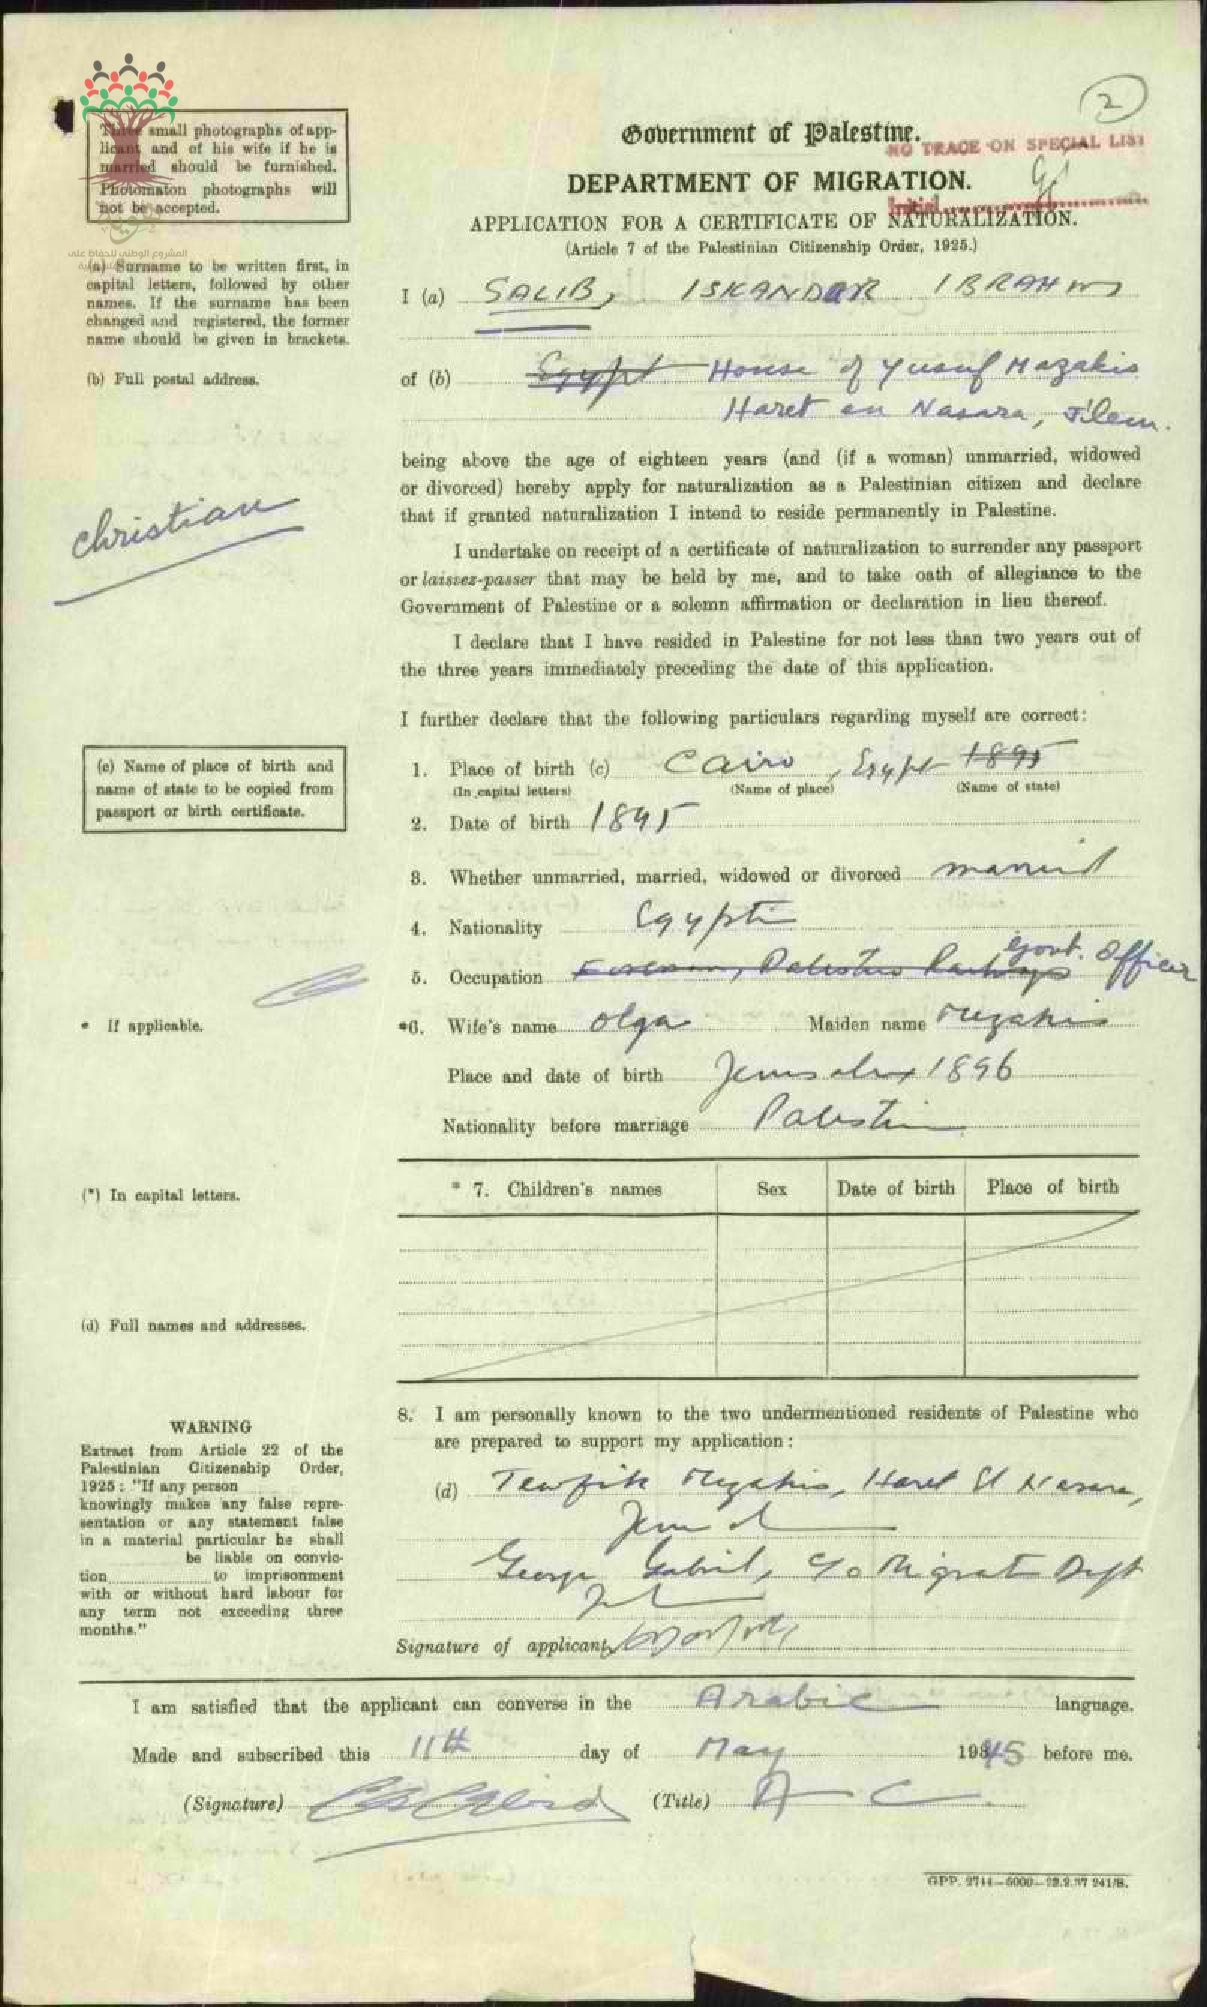 2
Three small photographs of app-
licant and of his wife if he is
married should be furnished.
Photomaton photographs will
not be accepted.
المشروع الوطني للحفاظ على
Government of Palestine.
NO TRACE ON SPECIAL LIST
DEPARTMENT OF MIGRATION.
Initial
APPLICATION FOR A CERTIFICATE OF NATURALIZATION.
(Article 7 of the Palestinian Citizenship Order, 1925.)
(a) Surname to be written first, in
capital letters, followed by other
names. If the surname has been
changed and registered, the former
name should be given in brackets.
I (a) SALIB, ISKANDAR IBRAHIM
(b) Full postal address.
of (b) Egypt House of Yusuf Mazakis
Haret en Nasara, J'lem.
being above the age of eighteen years (and (if a woman) unmarried, widowed
or divorced) hereby apply for naturalization as a Palestinian citizen and declare
that if granted naturalization I intend to reside permanently in Palestine.
christian
I undertake on receipt of a certificate of naturalization to surrender any passport
or laissez-passer that may be held by me, and to take oath of allegiance to the
Government of Palestine or a solemn affirmation or declaration in lieu thereof.
I declare that I have resided in Palestine for not less than two years out of
the three years immediately preceding the date of this application.
I further declare that the following particulars regarding myself are correct:
(c) Name of place of birth and
name of state to be copied from
passport or birth certificate.
1. Place of birth (c) Cairo, Egypt 1895
(In capital letters) (Name of place) (Name of state)
2. Date of birth 1895
3. Whether unmarried, married, widowed or divorced married
4. Nationality Egyptian
5. Occupation Foreman, Palestine Railways Govt. Officer
* If applicable.
*6. Wife's name Olga Maiden name Mezakis
Place and date of birth Jerusalem 1896
Nationality before marriage Palestinian
(*) In capital letters.
* 7. Children's names Sex Date of birth Place of birth
(d) Full names and addresses.
8. I am personally known to the two undermentioned residents of Palestine who
are prepared to support my application:
(d) Tewfik Mezakis, Haret El Nasara,
Jerusalem
George Gabriel, c/o Migration Dept
WARNING
Extract from Article 22 of the
Palestinian Citizenship Order,
1925: "If any person
knowingly makes any false repre-
sentation or any statement false
in a material particular he shall
be liable on convic-
tion to imprisonment
with or without hard labour for
any term not exceeding three
months."
Signature of applicant
I am satisfied that the applicant can converse in the Arabic language.
Made and subscribed this 11th day of May 1945 before me.
(Signature) (Title) A C
GPP. 2744—5000—22.2.37 241/S.